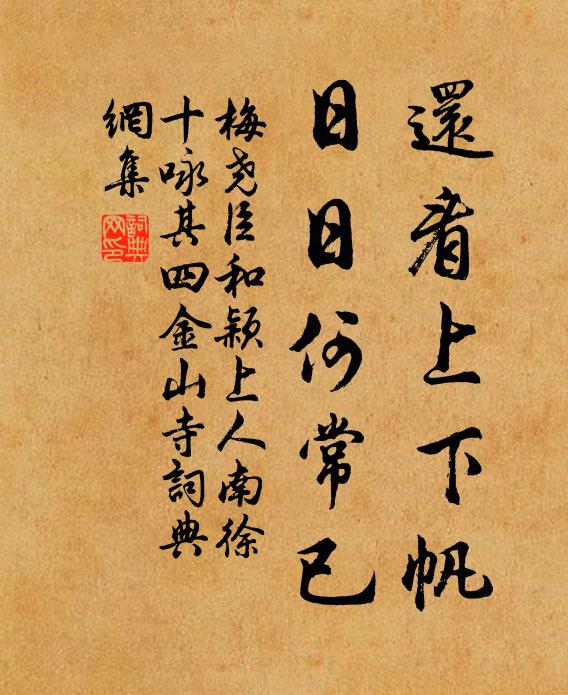 還看上下帆
日日何常已
梅堯臣和穎上人南徐
十咏其四金山寺詞典
網集
詞典
网印